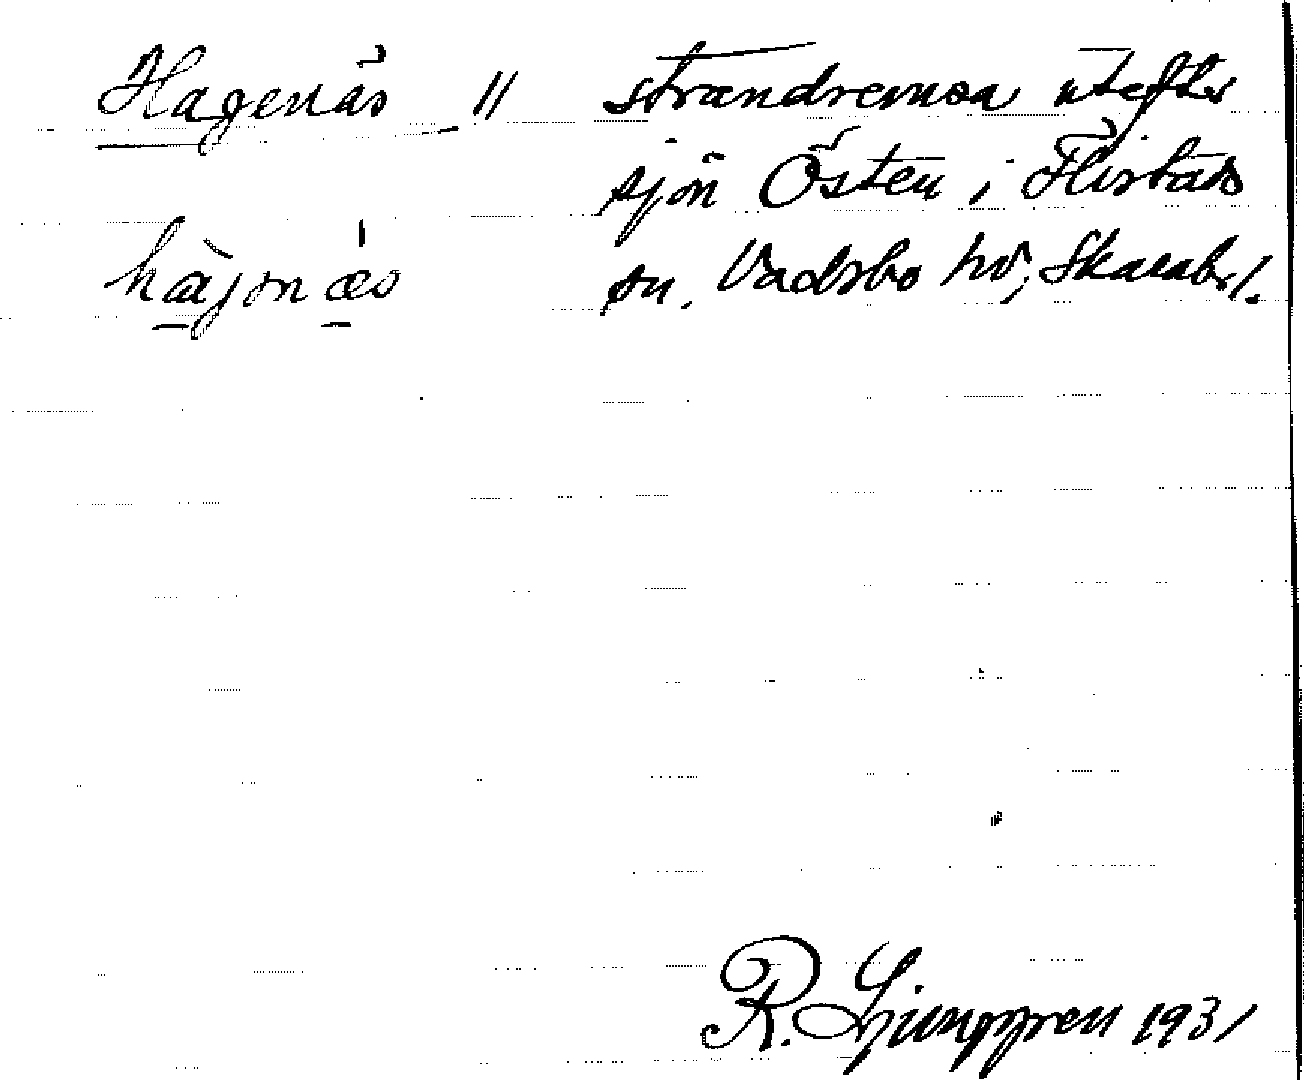 Hagenäs // strandremsa utefter
sjön Östen i Flistads
hägnæs sn. Vadsbo hd, Skarabs l.
R. Ljunggren 1931